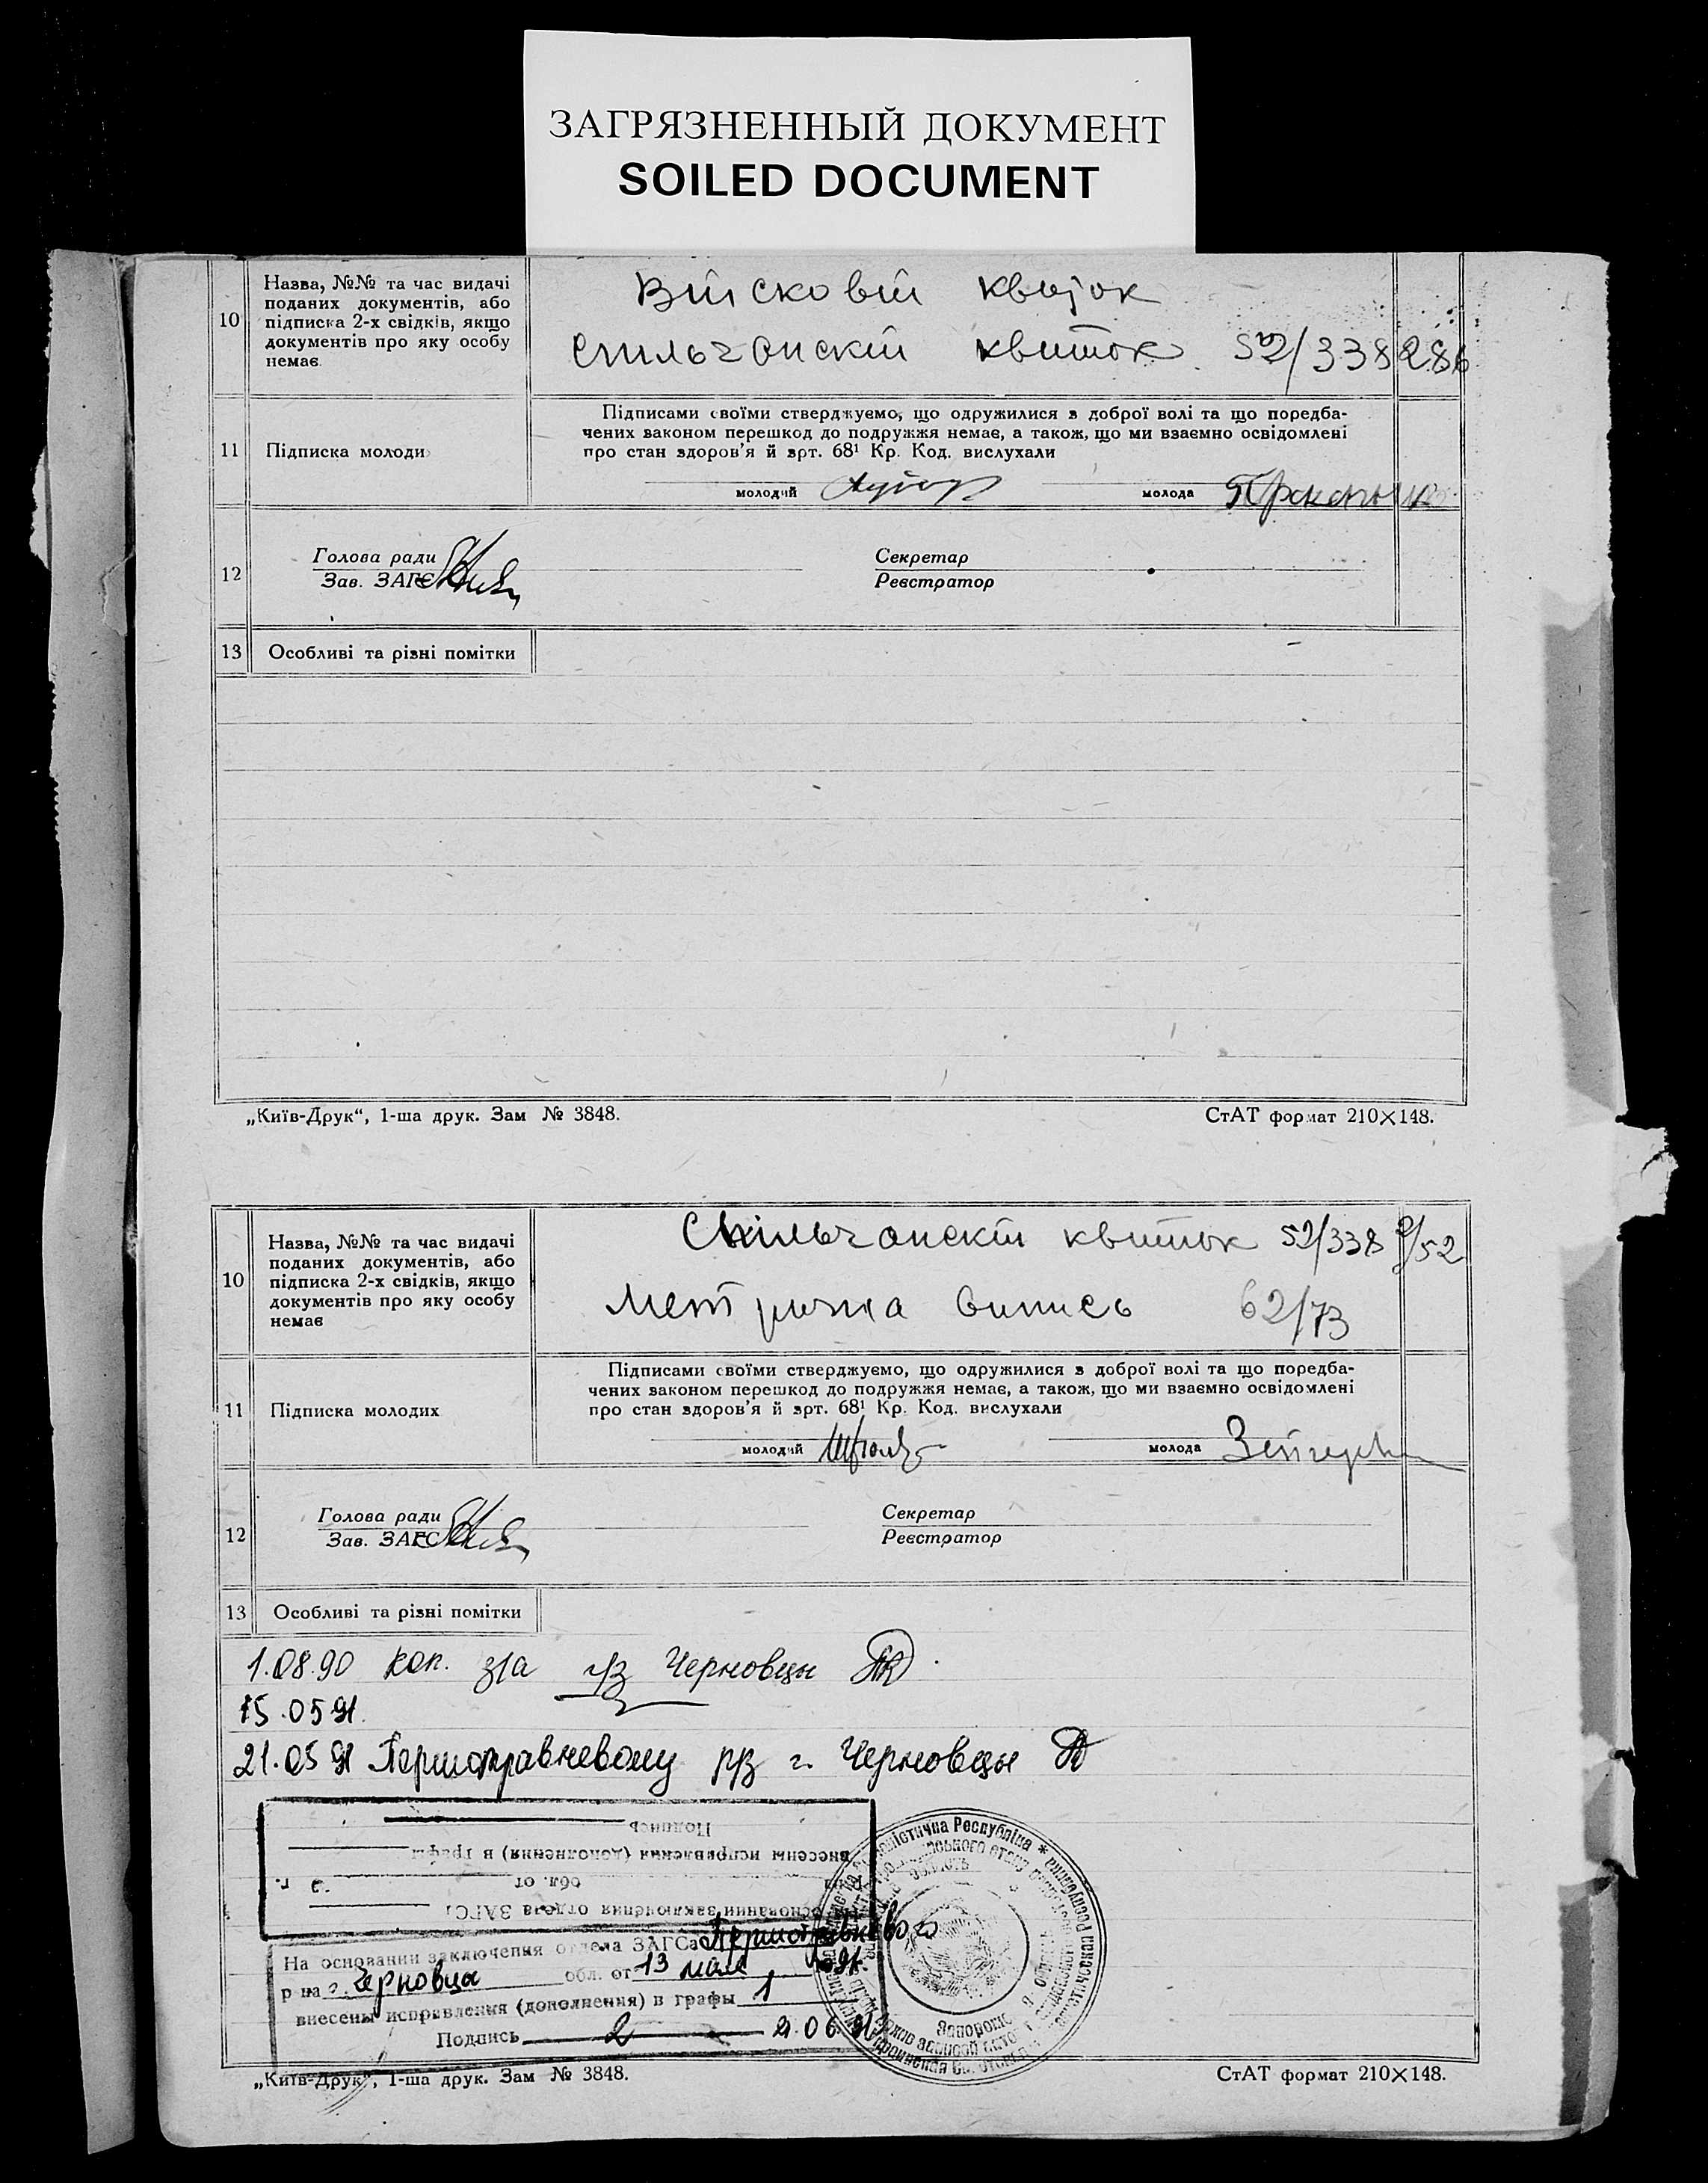 ЗАГРЯЗНЕННЫЙ ДОКУМЕНТ
SOILED DOCUMENT
10
Назва, №№ та час видачі
поданих документів, або
підписка 2-х свідків, якщо
документів про яку особу
немає.
Війсковій квиток
спильчанскій квиток 52/338286
11
Підписка молоди
Підписами своїми стверджуємо, що одружилися з доброї волі та що поредба-
чених законом перешкод до подружжя немає, а також, що ми взаємно освідомлені
про стан здоров'я й арт. 68¹ Кр. Код. вислухали
молодий
молода
12
Голова ради
Зав. ЗАГС
Секретар
Реєстратор
13 Особливі та різні помітки
„Київ-Друк“, 1-ша друк. Зам № 3848. СтАТ формат 210×148.
10
Назва, №№ та час видачі
поданих документів, або
підписка 2-х свідків, якщо
документів про яку особу
немає
Спільчанскій квиток 52/338
Метрична випись 62/73
11
Підписка молодих
Підписами своїми стверджуємо, що одружилися з доброї волі та що поредба-
чених законом перешкод до подружжя немає, а також, що ми взаємно освідомлені
про стан здоров'я й арт. 68¹ Кр. Код. вислухали
молодий
молода
12
Голова ради
Зав. ЗАГС
Секретар
Реєстратор
13 Особливі та різні помітки
1.08.90 коп. з/а Черновцы
15.05.91.
21.05 91 Першотравневому р/з г. Черновцы
Подпись
внесены исправления (дополнения) в графы
р-на обл. от г.
На основании заключения отдела ЗАГС
На основании заключения отдела ЗАГСа Першотравневого
р-на г. Черновцы обл. от 13 мая 1991.
внесены исправления (дополнения) в графы 1
Подпись 21.06.91
„Київ-Друк“, 1-ша друк. Зам № 3848. СтАТ формат 210×148.